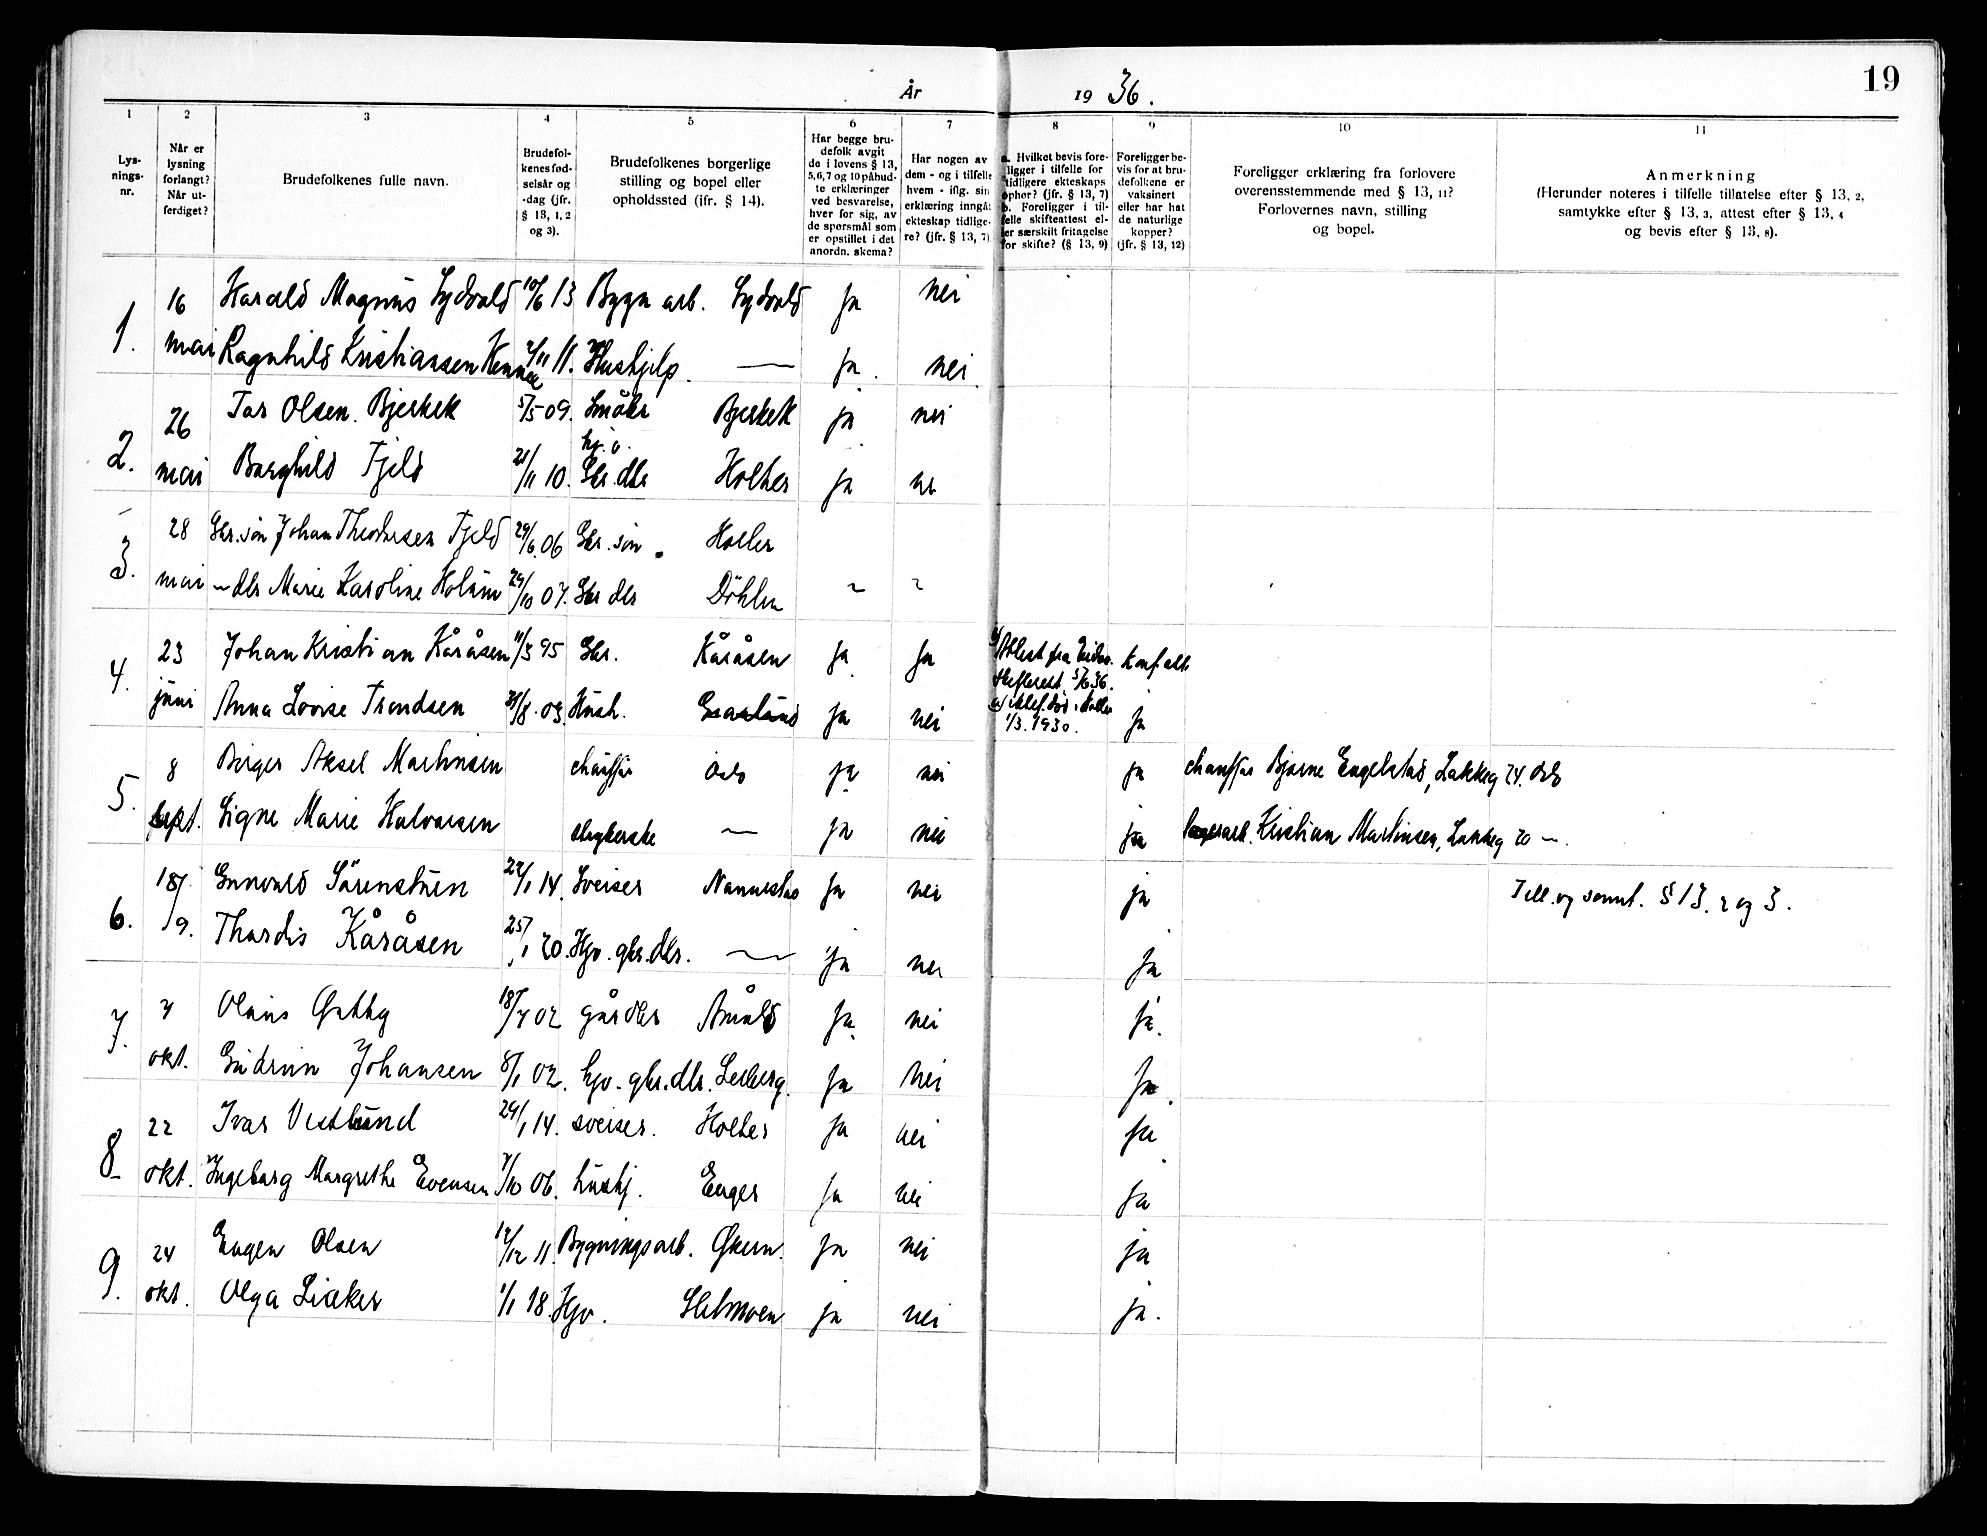 19
År 1936.
1 2 3 4 5 6 7 8 9 10 11
Lys-
nings-
nr.
Når er
lysning
forlangt?
Når ut-
ferdiget?
Brudefolkenes fulle navn.
Brudefol-
kenes fød-
selsår og
-dag (jfr.
§ 13, 1, 2
og 3).
Brudefolkenes borgerlige
stilling og bopel eller
opholdssted (ifr. § 14).
Har begge bru-
defolk avgit
de i lovens § 13,
5, 6, 7 og 10 påbud-
te erklæringer
ved besvarelse,
hver for sig, av
de spørsmål som
er opstillet i det
anordn. skema?
Har nogen av
dem - og i tilfelle
hvem - iflg. sin
erklæring inngåt
ekteskap tidlige-
re? (jfr. § 13, 7)
a. Hvilket bevis fore-
ligger i tilfelle for
tidligere ekteskaps
ophør? (jfr. § 13, 7)
b. Foreligger i til-
felle skifteattest el-
ler særskilt fritagelse
for skifte? (§ 13, 9)
Foreligger be-
vis for at bru-
defolkene er
vaksinert
eller har hat
de naturlige
kopper?
(jfr. § 13, 12)
Foreligger erklæring fra forlovere
overensstemmende med § 13, 11?
Forlovernes navn, stilling
og bopel.
Anmerkning
(Herunder noteres i tilfelle tillatelse efter § 13, 2,
samtykke efter § 13, 3, attest efter § 13, 4
og bevis efter § 13, 8).
1. 16 Harald Magnus Lydvald 10/6 13 Bygn arb. Lydvald Ja nei
mai Ragnhild Kristiansen 2/11 11. Hushjelp. — Ja. nei.
2. 26 Tor Olsen Bjerkek 5/5 09. Småbr Bjerkek ja nei
mai Borghild Fjeld 21/11 10. hj. v. Gbr. dtr Holter ja nei
3. 28 Gbr. søn Johan Theodorsen Fjeld 29/6. 06 Gbr. søn Holter
mai — dtr Marie Karoline Holum 29/10 07. Gbr dtr Döhlen ~ ~
4. 23 Johan Kristian Kåråsen 11/3 95 Gbr. Kåråsen Ja Ja b) Attest fra Eidsv. Konf. att
juni Anna Lovise Trondsen /8. 03. Hush. ja nei skifterett 5/6 36. 1/3. 1930. ja
5. 8 Birger Aksel Martinsen chauffør Oslo ja nei ja chauffør Bjarne Engelstad, Lakkeg 24. Oslo
sept. Signe Marie Halvorsen strykerske — ja nei ja lagerarb. Kristian Martinsen, Lakkeg 20 —.
6. 18/9. Gunvald Sörenstuen 22/1 14. Sveiser Nannestad Ja nei ja Till. og samt. § 13. 2 og 3.
Thordis Kåråsen 25/1 20. Hjv. gbr. dtr. — ja nei ja
7. 7 Olaus Ørtby 18/7 02 gårdbr Åmål Ja nei ja.
okt. Gudrun Johansen 8/1 02. hjv. gbr. dtr. Leeberg. Ja nei Ja.
8 22 Ivar Vestlund 29/1 14. sveiser. Holter Ja nei ja
okt. Ingeborg Margrethe Evensen 7/10 06. hushj. Enger Ja nei Ja
9. 24 Eugen Olsen 12/12 11. Bygningsarb. Økern. Ja nei ja
okt. Olga Liaker 1/1 18. Hjv. Sletmoen ja nei ja.